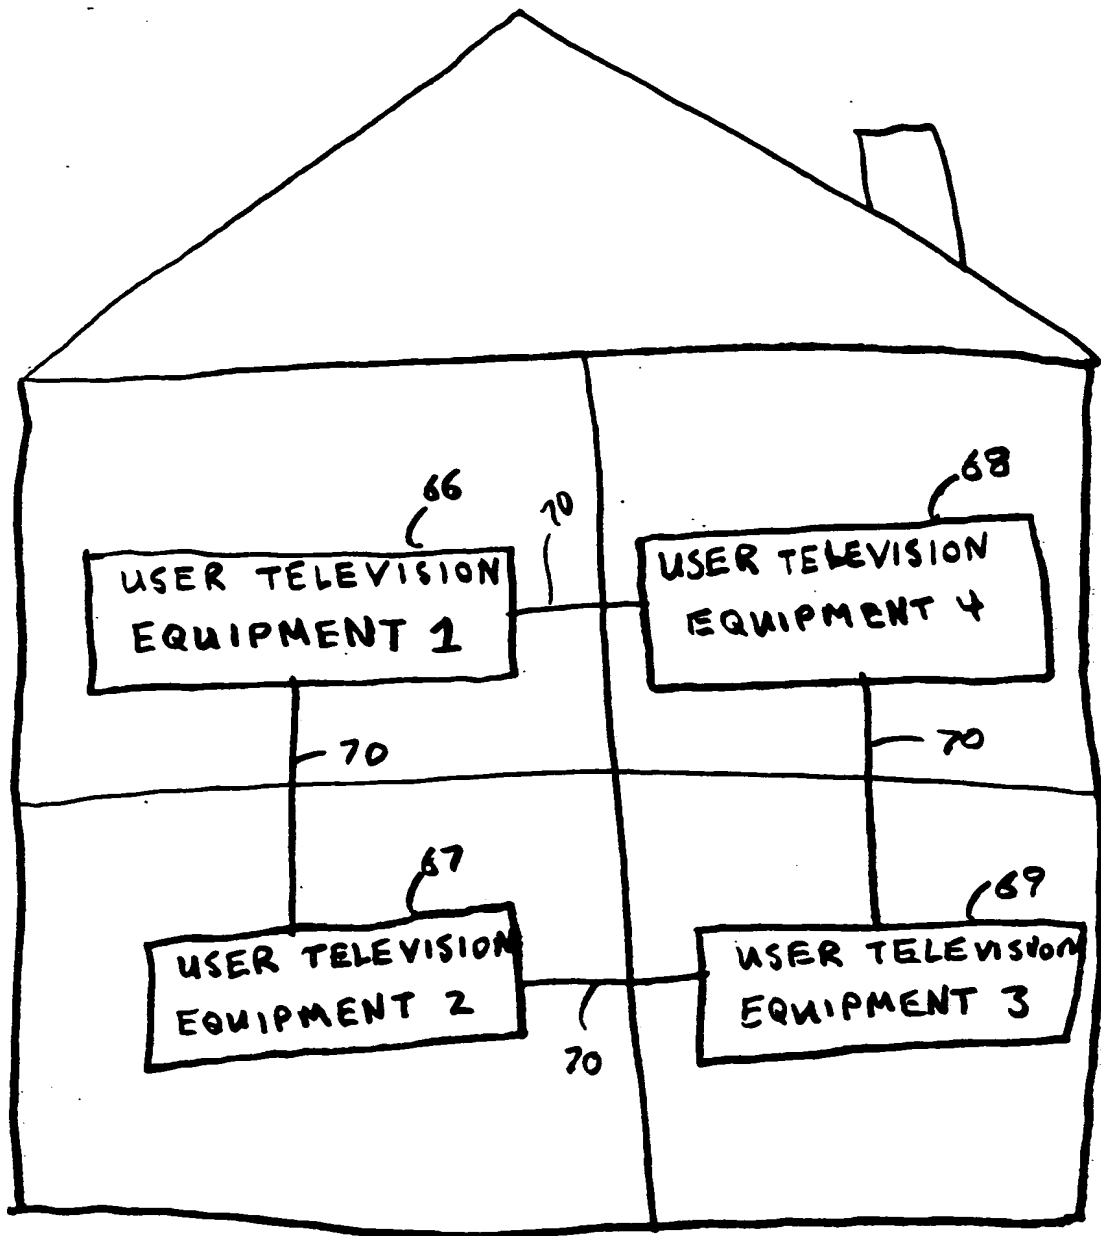 68
66
70
USER TELEVISION
EQUIPMENT 4
USER TELEVISION
EQUIPMENT 1
70
70
67
69
USER TELEVISION
EQUIPMENT 2
USER TELEVISION
EQUIPMENT 3
70